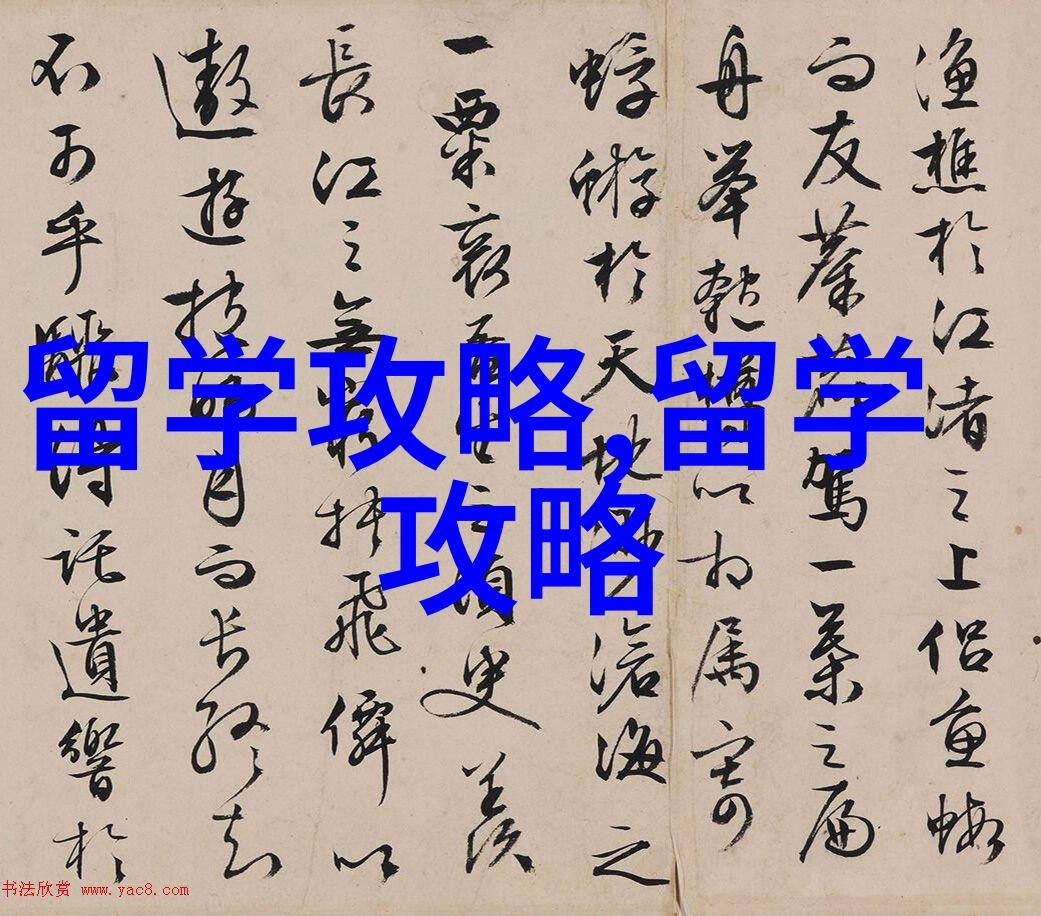 漁樵於江渚之上侣魚蝦
而友麋鹿駕一葉之扁
舟舉匏樽以相属寄
蜉蝣於天地眇滄海之
一粟哀吾生之須臾羨
長江之無窮挾飛僊以
遨遊抱明月而長終知
不可乎驟得託遺響於
留学攻略,留学
攻略
书法欣赏 www.yac8.com